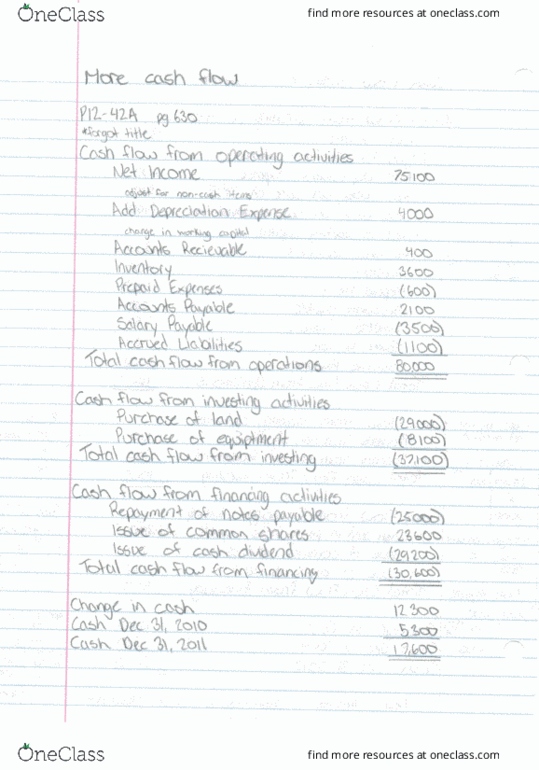 OneClass find more resources at oneclass.com
More cash flow
P12-42A pg 630
*forgot title
Cash flow from operating activities
Net Income 75100
adjust for non-cash items
Add Depreciation Expense 4000
change in working capital
Accounts Recievable 400
Inventory 3600
Prepaid Expenses (600)
Accounts Payable 2100
Salary Payable (3500)
Accrued Liabalities (1100)
Total cash flow from operations 80000
Cash flow from investing activities
Purchase of land (29000)
Purchase of equiptment (8100)
Total cash flow from investing (37,100)
Cash flow from financing activities
Repayment of notes payable (25000)
Issue of common shares 23600
Issue of cash dividend (29,200)
Total cash flow from financing (30,600)
Change in cash 12300
Cash Dec 31, 2010 5300
Cash Dec 31, 2011 17,600
OneClass find more resources at oneclass.com